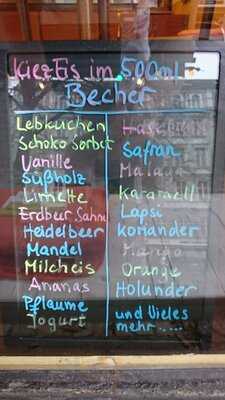 KiezEis im 500ml
Becher
Lebkuchen
Schoko Sorbet
Vanille
Süßholz
Limette
Erdbeer Sahne
Heidelbeer
Mandel
Milcheis
Ananas
Pflaume
Yogurt
Haselnuss
Safran
Malaga
Karamell
Lapsi
Koriander
Mango
Orange
Holunder
und Vieles
mehr.....